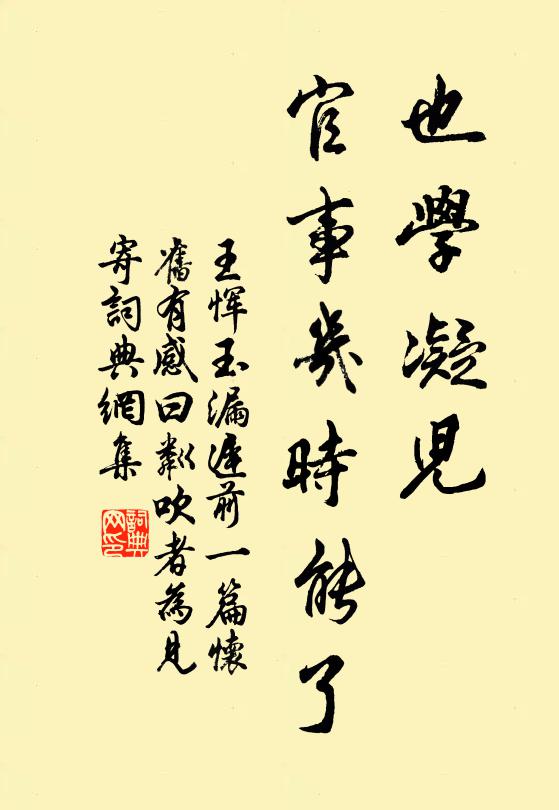 也學凝兒
官事幾時能了
王惲玉漏遲前一篇懷
舊有感曰鄰吹者為見
寄詞典網集
詞典網印